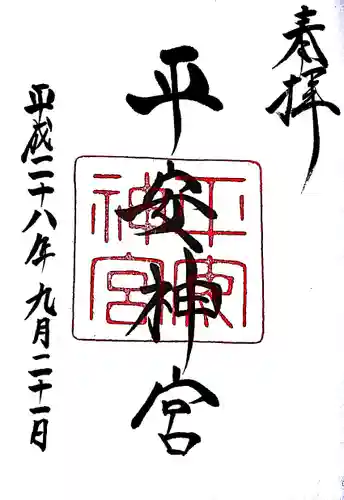 奉拝
平安神宮
平安
神宮
平成二十八年九月二十一日